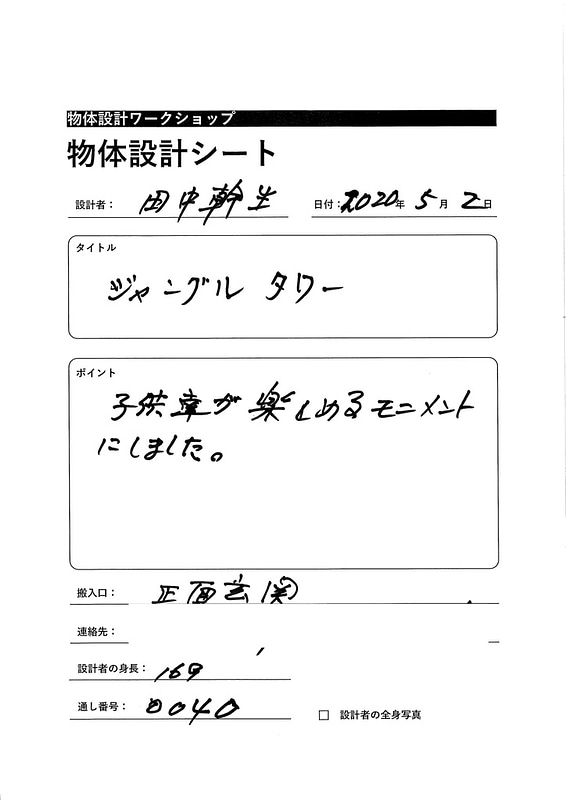 物体設計ワークショップ
物体設計シート
設計者： 田中幹生 日付：2020年 5月 2日
タイトル
ジャングル タワー
ポイント
子供達が 楽しめるモニメント
にしました。
搬入口： 正面玄関
連絡先：
設計者の身長： 169
通し番号： 0040
□ 設計者の全身写真